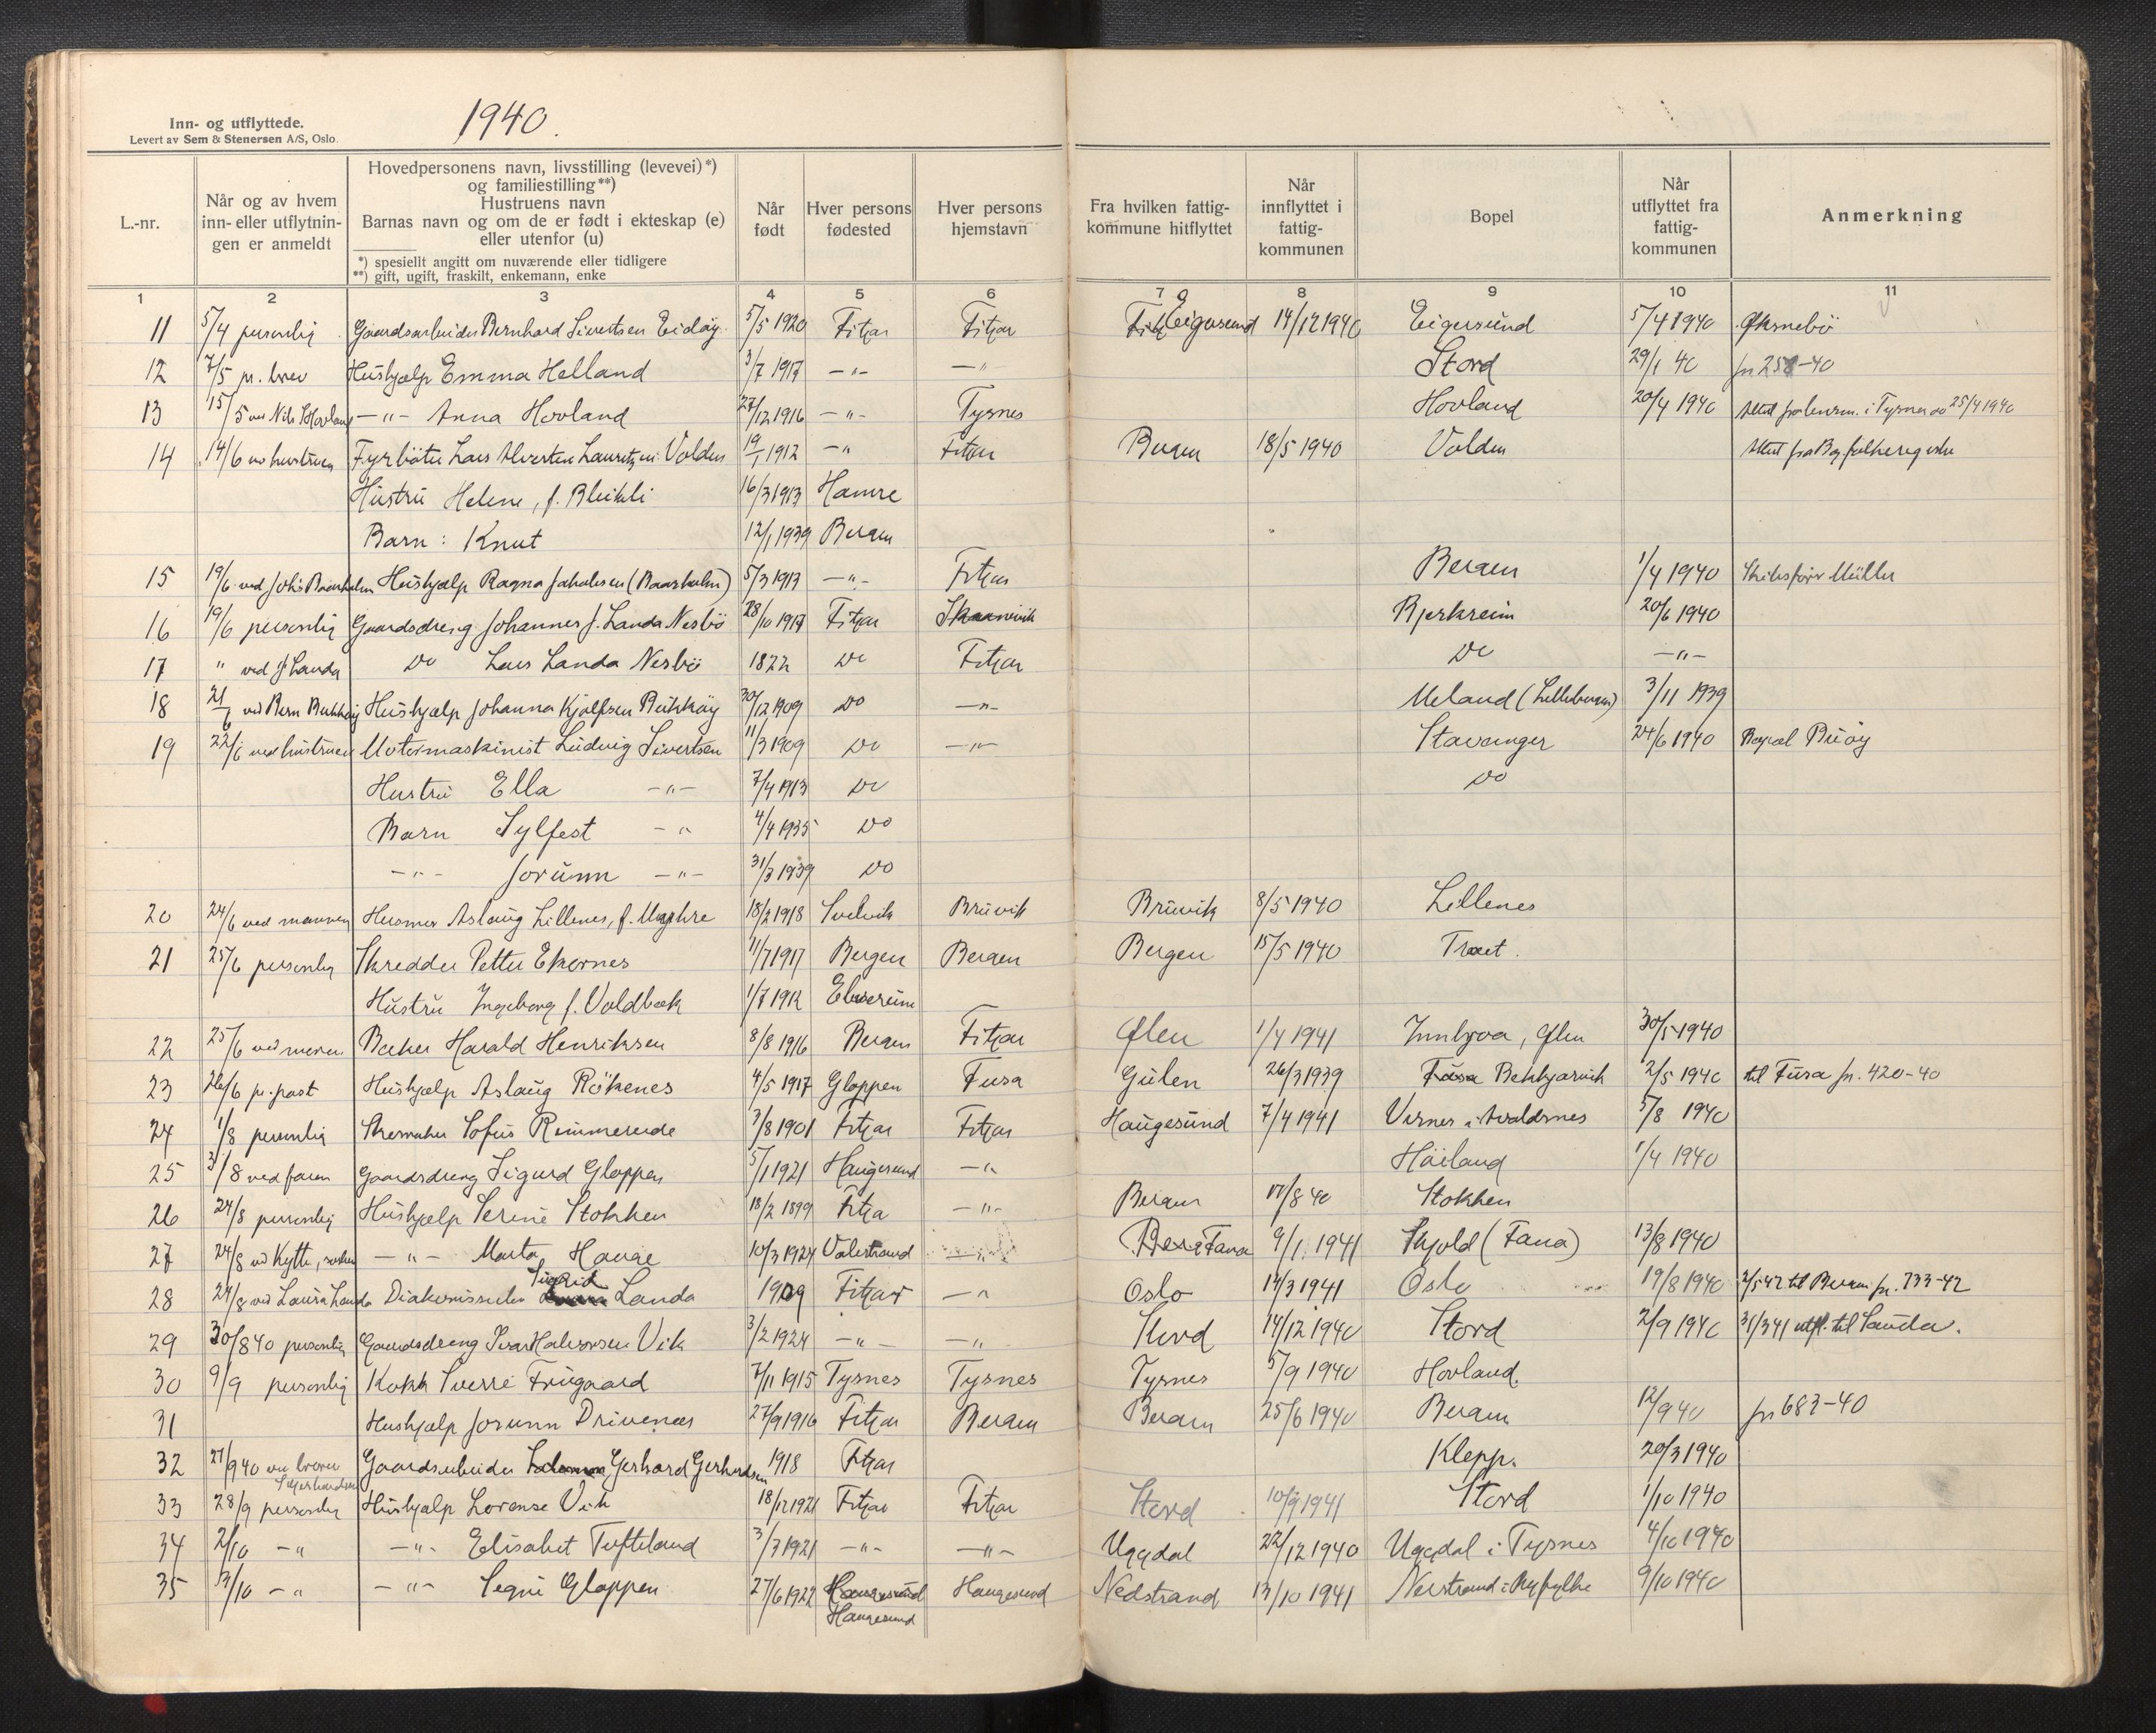 1940.
Inn- og utflyttede.
Levert av Sem & Stenersen A/S, Oslo
L.-nr.
Når og av hvem inn- eller utflytnin-gen er anmeldt
Hovedpersonens navn, livsstilling (levevei)*)
og familiestilling**)
Hustruens navn
Barnas navn og om de er født i ekteskap (e)
eller utenfor (u)
*) spesiellt angitt om nuværende eller tidligere
**) gift, ugift, fraskilt, enkemann, enke
Når født
Hver persons fødested
Hver persons hjemstavn
Fra hvilken fattig-kommune hitflyttet
Når innflyttet i fattig-kommunen
Bopel
Når utflyttet fra fattig-kommunen
Anmerkning
1 2 3 4 5 6 7 8 9 10 11
11 5/4 personlig Gaardsarbeider Bernhard Sivertsen Eidøy 5/5 1920 Fitjar Fitjar Eigersund 14/12 1940 Eigersund 5/4 1940 Øksnebö
12 7/5 pr. brev Hushjælp Emma Helland 3/7 1917 -"- -"- Stord 29/1 40
13 15/5 ved Nils Hovland -"- Anna Hovland 27/12 1916 -"- Tysnes Hovland 20/4 1940 i Tysnes 25/4 1940
14 14/6 hustruen Fyrböter Lars Volden 19/1 1912 -"- Fitjar Bergen 18/5 1940 Volden
Hustru Helene, f. Bleikli 16/3 1913 Hamre
Barn: Knut 12/1 1939 Bergen
15 19/6 ved Hushjælp Ragna Jakobsen (Baarholm) 5/3 1917 -"- Fitjar Bergen 1/4 1940 Müller
16 19/6 personlig Gaardsdreng Johannes J. Landa Nesbö 28/10 1917 Fitjar Skaanevik Bjerkreim 20/6 1940
17 " ved J Landa Do Lars Landa Nesbö 1822 Do Fitjar Do -"-
18 21/6 ved Bern Hushjælp Johanna Kjølfsen 30/12 1909 Do -"- Meland 3/11 1939
19 22/6 ved hustruen Motormaskinist Ludvig Sivertsen 11/3 1909 Do -"- Stavanger 24/6 1940 Buöy
Hustru Ella -"- 7/4 1913 Do Do
Barn Sylfest -"- 4/4 1935 Do
-"- Jorunn -"- 31/3 1939 Do
20 24/6 ved mannen Husmor Aslaug Lillenes, f. 18/2 1918 Bruvik Bruvik 8/5 1940 Lillenes
21 25/6 personlig Skredder Petter Ekornes 11/7 1917 Bergen Bergen Bergen 15/5 1940 Træet.
Hustru Ingeborg f. Voldbæk 1/7 1912
22 25/6 ved moren Baker Harald Henriksen 8/8 1916 Bergen Fitjar Ølen 1/4 1941 Innbjoa, Ølen 30/5 1940
23 26/6 pr. post Hushjælp Aslaug Rökenes 4/5 1917 Gloppen Fusa Gulen 26/3 1939 Bekkjarvik 2/5 1940 til Fusa jn. 420-40
24 1/8 personlig Skomaker Sofus Rimmereide 3/8 1901 Fitjar Fitjar Haugesund 7/4 1941 i Avaldsnes 5/8 1940
25 3/8 ved faren Gaardsdreng Sigurd Gloppen 5/1 1921 Haugesund -"- Höiland 1/4 1940
26 24/8 personlig Hushjælp Serine Stokken 18/2 1899 Fitja -"- Bergen 17/8 40 Stokken
27 24/8 -"- Marta Hauge 10/3 1924 Valestrand Fana 9/1 1941 Skjold (Fana) 13/8 1940
28 24/8 ved Laura Landa Diakonissen Sigrid Landa 1909 Fitjar -"- Oslo 14/3 1941 Oslo 19/8 1940 2/5 42 til Bergen jn. 733-42
29 30/8 40 personlig Gaardsdreng Ivar Halvorsen Vik 3/2 1924 -"- -"- Stord 14/12 1940 Stord 2/9 1940 31/3 41 utfl. til Sauda.
30 9/9 personlig Kokk Sverre Friigaard 7/11 1915 Tysnes Tysnes Tysnes 5/9 1940 Hovland.
31 Hushjælp Jorunn Drivenes 27/9 1916 Fitjar Bergen Bergen 25/6 1940 Bergen 12/9 40 jn 683-40
32 27/9 40 Gaardsarbeider Gerhard Gerhardsen 1918 Fitjar Klepp. 20/3 1940
33 28/9 personlig Hushjælp Lorense Vik 18/12 1921 Fitjar Fitjar Stord 10/9 1941 Stord 1/10 1940
34 2/10 -"- -"- Elisabet Tufteland 3/7 1921 -"- -"- Uggdal 22/12 1940 Uggdal i Tysnes 4/10 1940
35 3/10 -"- -"- Signe Gloppen 27/6 1922 Haugesund Haugesund Nedstrand 13/10 1941 Nerstrand i Ryfylke 9/10 1940
Haugesund